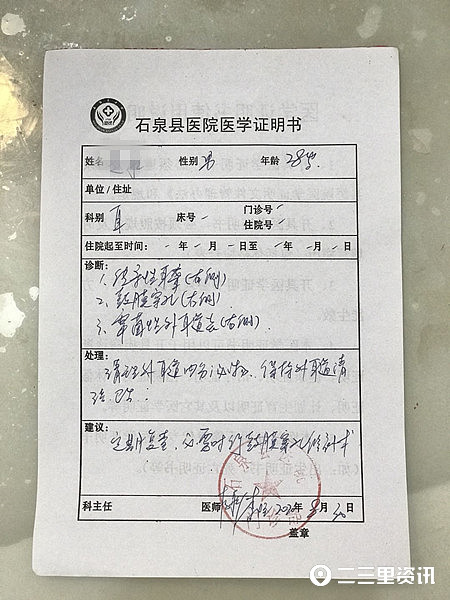 石泉县医院医学证明书
姓名 性别 男 年龄 28岁
单位/住址
科别 耳 床号 - 门诊号 - 住院号 -
住院起至时间： - 年 - 月 - 日至 - 年 - 月 - 日
诊断：
1、传导性耳聋(右侧)
2、鼓膜穿孔(右侧)
3、霉菌性外耳道炎(右侧)
处理：
清理外耳道内分泌物、保持外耳道清
洁
建议：
定期复查，必要时行鼓膜穿孔修补术
科主任 医师 2020年 月30日
盖章
二三里资讯